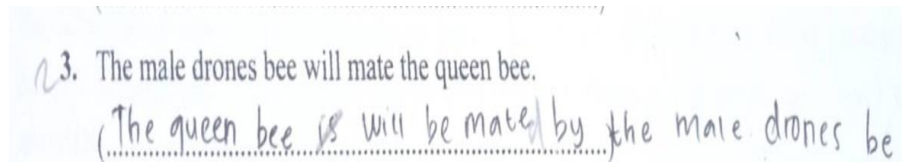 3. The male drones bee will mate the queen bee.
The queen bee is will be mated by the male drones be